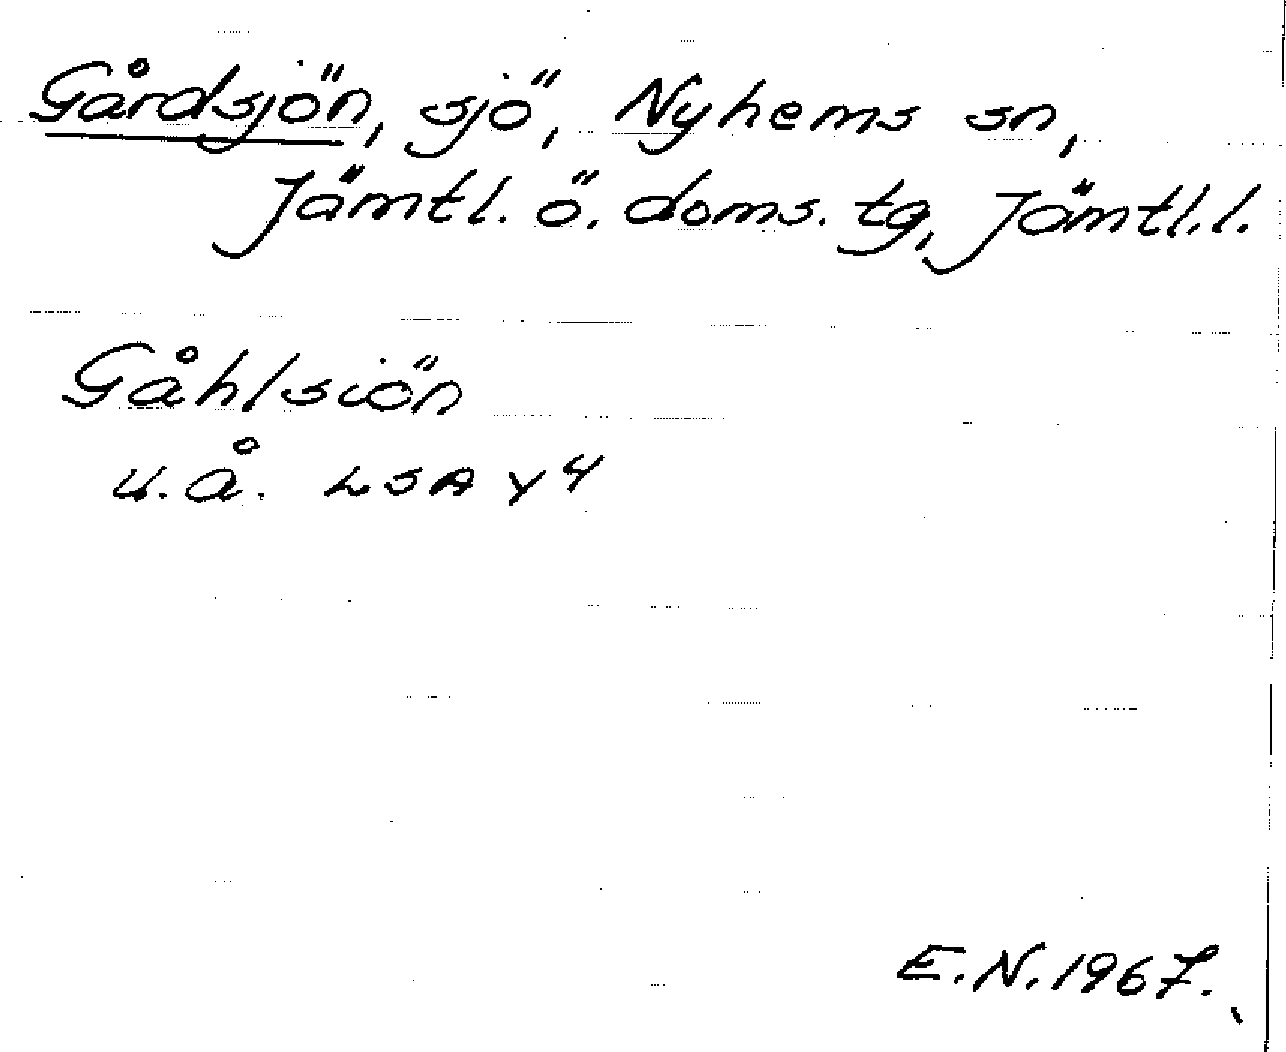 Gårdsjön, sjö, Nyhems sn,
Jämtl. ö. doms. tg, Jämtl.l.
Gåhlsiön
u.å. LSA Y4
E.N.1967.